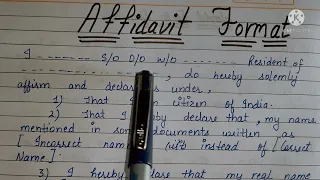 Affidavit Format
I -------- S/O D/O W/O -------- Resident of
, do hereby solemly
affirm and declare as under,
1) That I citizen of India.
2) That I declare that, my name
mentioned in documents written as
[Incorrect name] instead of [Correct
Name].
3) I hereby declare that my real name